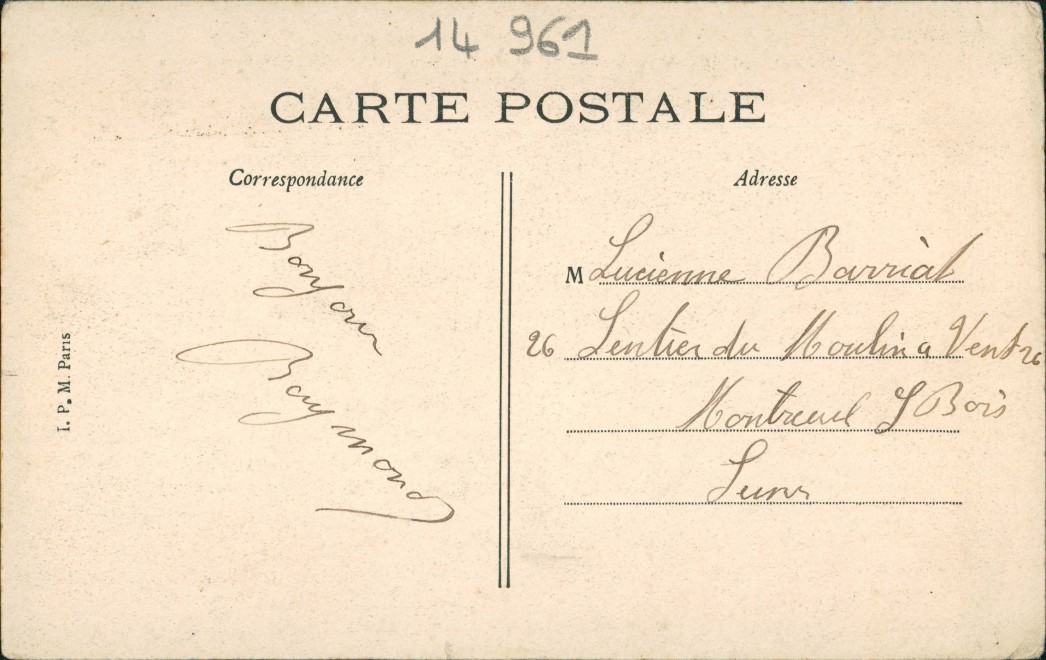 14 961
CARTE POSTALE
Correspondance
Bonjour
Raymond
I. P. M. Paris
Adresse
M Lucienne Barriat
26 Sentier du Moulin a Vent 26
Montreuil S Bois
Seine